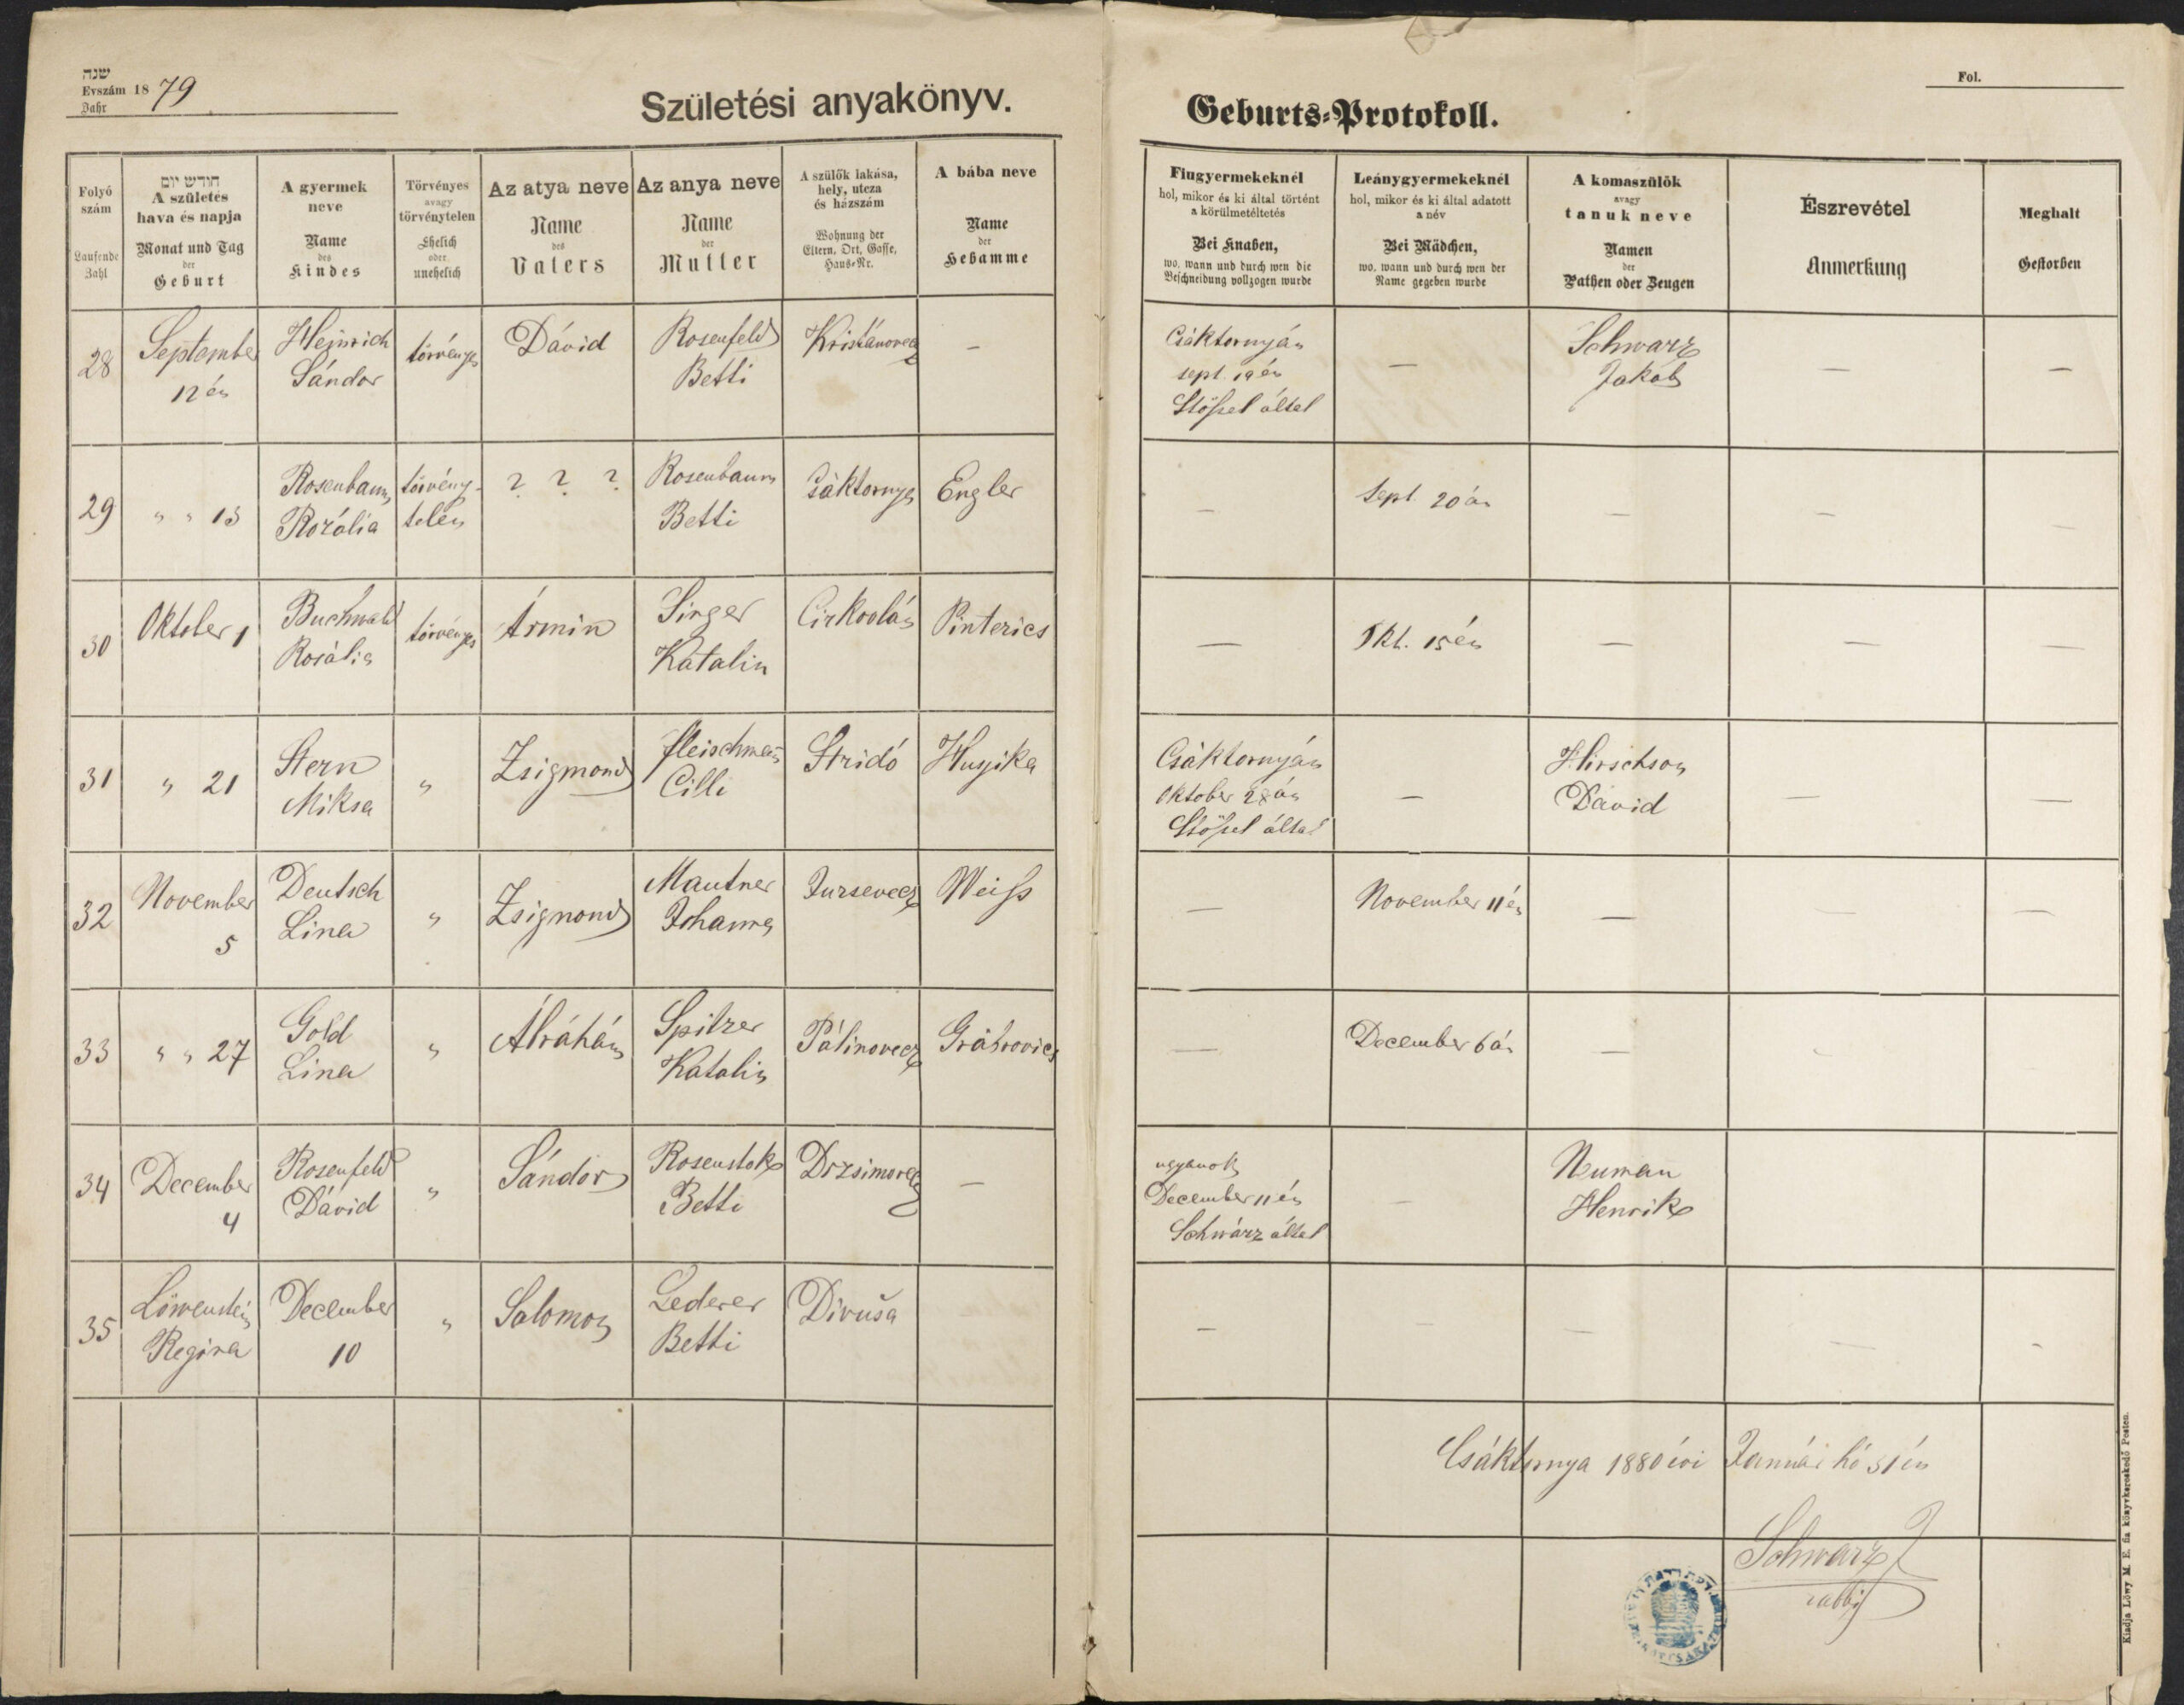 שנה
Evszám 18 79
Jahr
Születési anyakönyv.
Geburts-Protokoll.
Fol.
Folyó
szám
Laufende
Zahl
חודש יום
A születés
hava és napja
Monat und Tag
der
Geburt
A gyermek
neve
Name
des
Kindes
Törvényes
avagy
törvénytelen
Ehelich
oder
unehelich
Az atya neve
Name
des
Vaters
Az anya neve
Name
der
Mutter
A szülők lakása,
hely, utcza
és házszám
Wohnung der
Eltern, Ort, Gasse,
Haus-Nr.
A bába neve
Name
der
Hebamme
Fiugyermekeknél
hol, mikor és ki által történt
a körülmetéltetés
Bei Knaben,
wo, wann und durch wen die
Beschneidung vollzogen wurde
Leánygyermekeknél
hol, mikor és ki által adatott
a név
Bei Mädchen,
wo, wann und durch wen der
Name gegeben wurde
A komaszülők
avagy
tanuk neve
Namen
der
Pathen oder Zeugen
Észrevétel
Anmerkung
Meghalt
Gestorben
28
September
12 én
Heinrich
Sándor
törvényes
Dávid
Rosenfeld
Betti
Kristánovecz
—
Csáktornyán
sept. 19 én
Stößel által
—
Schwarz
Jakab
—
—
29
" " 13
Rosenbaum
Rozália
törvény-
telen
? ? ?
Rosenbaum
Betti
Csáktornya
Engler
—
Sept. 20 án
—
—
—
30
Oktober 1
Buchwald
Rosália
törvényes
Ármin
Singer
Katalin
Cirkovlán
Pinterics
—
Okt. 15 én
—
—
—
31
" 21
Stern
Miksa
"
Zsigmond
Fleischman
Cilli
Stridó
Huyika
Csáktornyán
Oktober 28 án
Stößel által
—
Hirschson
Dávid
—
—
32
November
5
Deutsch
Lina
"
Zsigmond
Mautner
Johanna
Jursevecz
Weiß
—
November 11 én
—
—
—
33
" " 27
Gold
Lina
"
Ábráhám
Spitzer
Katalin
Pálinovecz
Grábrovics
—
December 6 án
—
-
34
December
4
Rosenfeld
Dávid
"
Sándor
Rosenstok
Betti
Drzsimovecz
—
ugyanott
December 11 én
Schwárz által
—
Neuman
Henrik
35
Löwenstein
Regina
December
10
"
Salomon
Lederer
Betti
Divuša
—
—
—
—
—
-
Csáktornya 1880 évi Január hó 31 én
Schwarz J
rabbi
Kiadja Löwy M. E. fia könyvkereskedő Pesten.